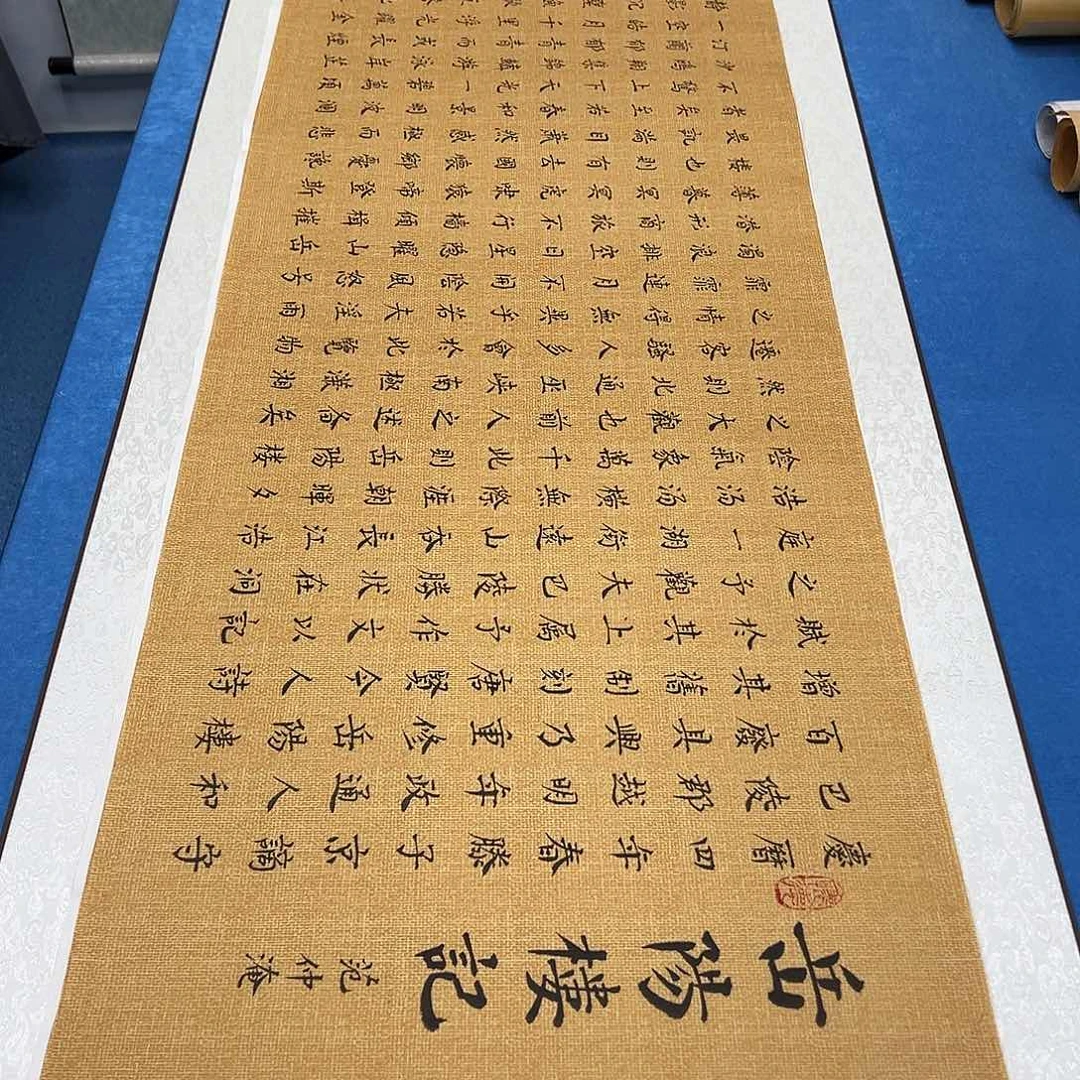 岳陽樓記
范仲淹
慶曆四年春滕子京謫守
巴陵郡越明年政通人和
百廢具興乃重修岳陽樓
增其舊制刻唐賢今人詩
賦於其上属予作文以記
之予觀夫巴陵勝狀在洞
庭一湖銜遠山吞長江浩
浩湯湯橫無際涯朝暉夕
陰氣象萬千此則岳陽樓
之大觀也前人之述備矣
然則北通巫峽南極瀟湘
遷客騷人多會於此覽物
之情得無異乎若夫淫雨
霏霏連月不開陰風怒号
濁浪排空日星隐曜山岳
潛形商旅不行檣傾楫摧
薄暮冥冥虎嘯猿啼登斯
樓也則有去國懷鄉憂讒
畏譏滿目蕭然感極而悲
者矣至若春和景明波瀾
不驚上下天光一碧萬頃
沙鷗翔集錦鱗游泳岸芷
汀蘭郁郁青青而或長煙
一空皓月千里浮光躍金